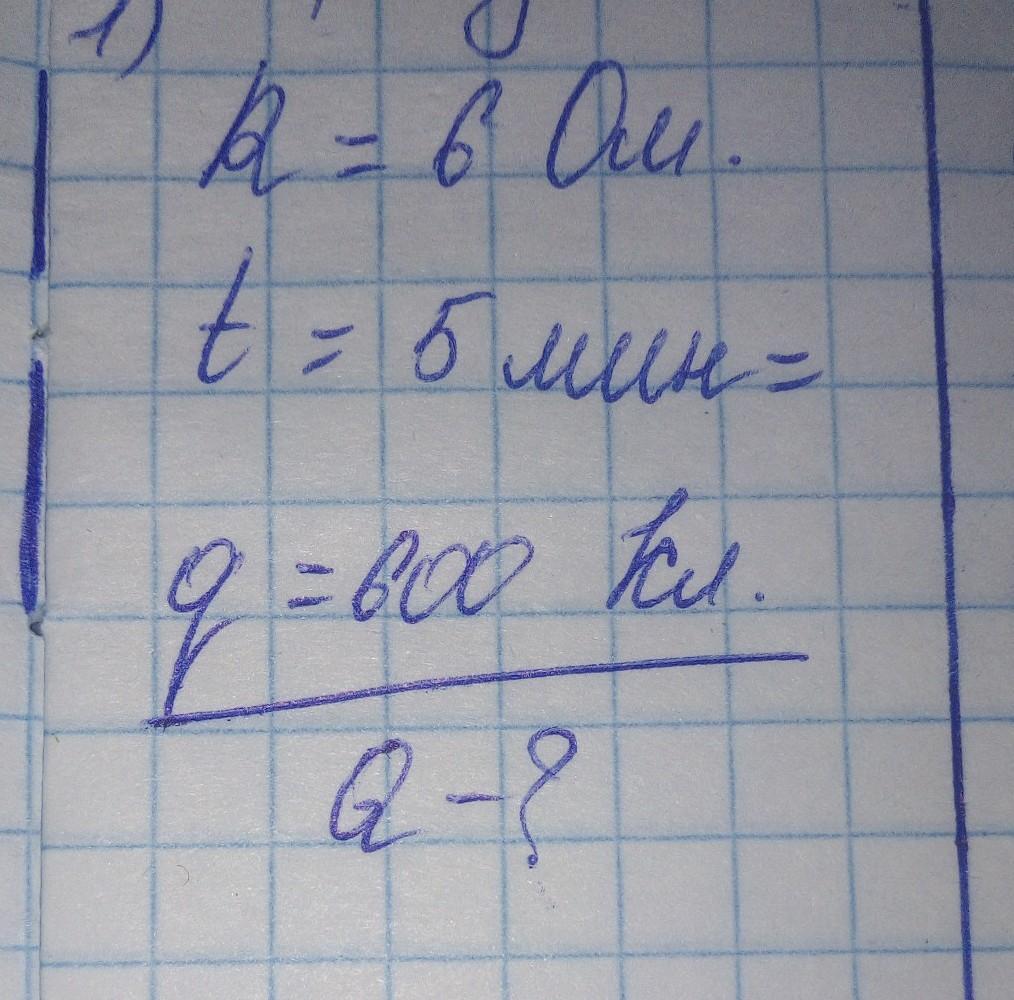 1)
R = 6 Ом.
t = 5 мин =
q = 600 Кл.
Q - ?